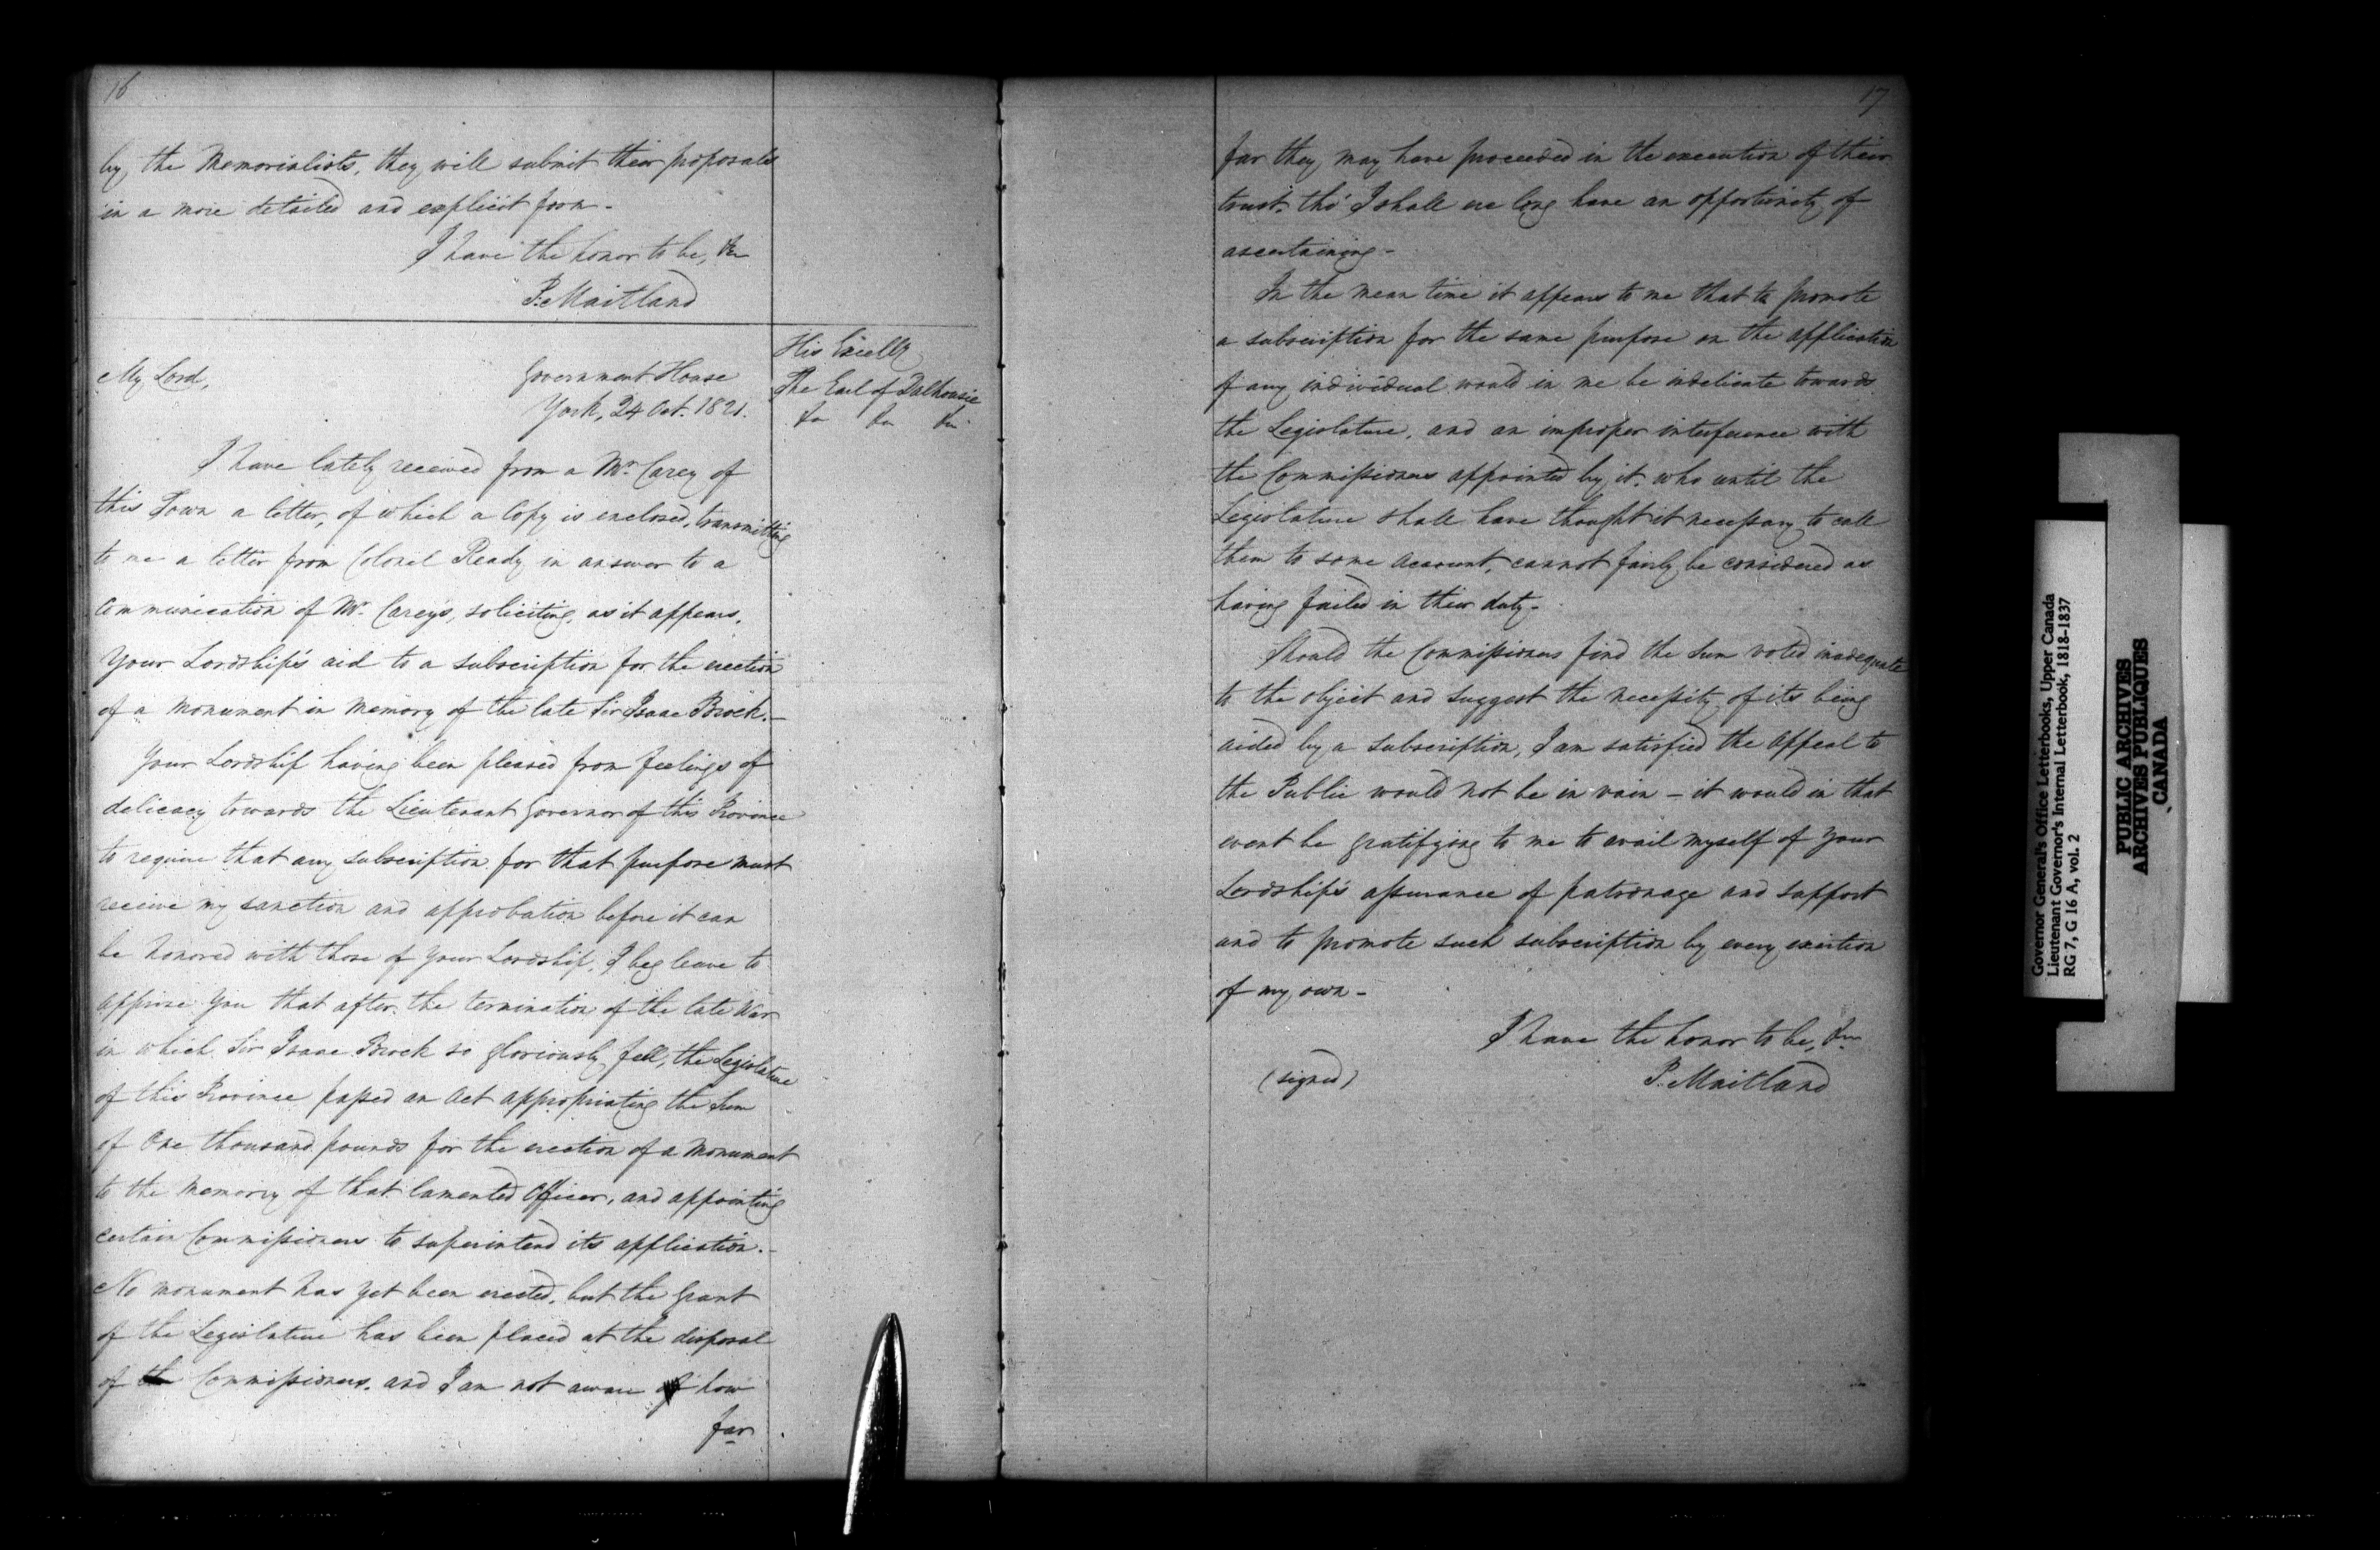 16
by the Memorialists, they will submit their proposals
in a more detailed and explicit form -
I have the honor to be, &c
P. Maitland
His Excelly
The Earl of Dalhousie
&c &c &c
My Lord,
Government House
York, 24 Oct. 1821.
I have lately received from a Mr. Carey of
this Town a letter, of which a Copy is enclosed, transmitting
to me a letter from Colonel Ready in answer to a
Communication of Mr. Carey's, soliciting, as it appears,
Your Lordship's aid to a subscription for the erection
of a Monument in Memory of the late Sir Isaac Brock. -
Your Lordship having been pleased from feelings of
delicacy towards the Lieutenant Governor of this Province
to require that any subscription for that purpose must
receive my sanction and approbation before it can
be honored with those of Your Lordship, I beg leave to
apprise You that after the termination of the late War
in which Sir Isaac Brock so gloriously fell, the Legislature
of this Province passed an Act appropriating the Sum
of One thousand pounds for the erection of a Monument
to the Memory of that lamented Officer, and appointing
certain Commissioners to superintend its application. -
No monument has yet been erected, but the Grant
of the Legislature has been placed at the disposal
of the Commissioners, and I am not aware of how
far
17
far they may have proceeded in the execution of their
trust, tho' I shall ere long have an opportunity of
ascertaining -
In the mean time it appears to me that to promote
a subscription for the same purpose on the application
of any individual would in me be indelicate towards
the Legislature, and an improper interference with
the Commissioners appointed by it, who until the
Legislature shall have thought it necessary to call
them to some account, cannot fairly be considered as
having failed in their duty -
Should the Commissioners find the Sum voted inadequate
to the object and suggest the necessity of its being
aided by a Subscription, I am satisfied the appeal to
the Public would not be in vain - it would in that
event be gratifying to me to avail myself of Your
Lordship's assurance of patronage and support
and to promote such subscription by every exertion
of my own -
I have the honor to be, &c
(signed) P. Maitland
Governor General's Office Letterbooks, Upper Canada
Lieutenant Governor's Internal Letterbook, 1818-1837
RG 7, G 16 A, vol. 2
PUBLIC ARCHIVES
ARCHIVES PUBLIQUES
CANADA